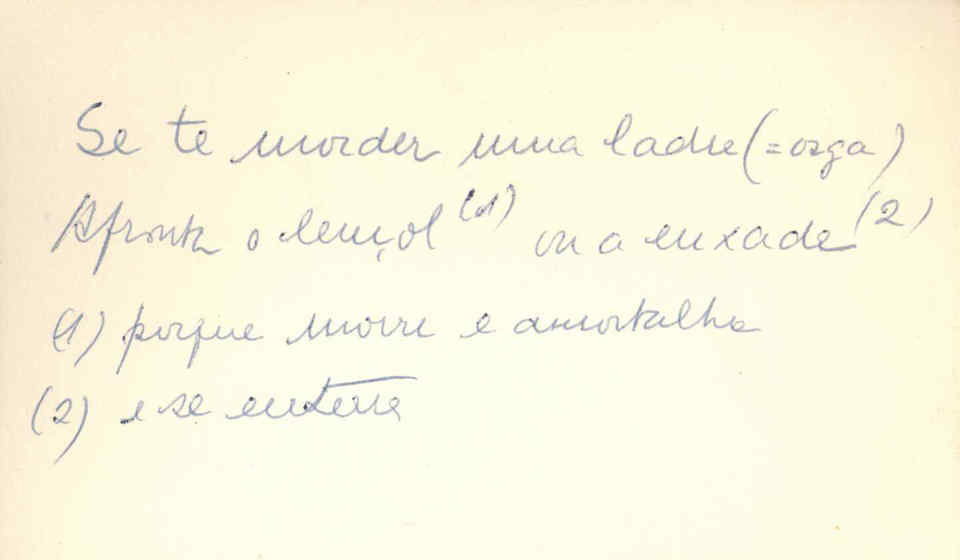 Se te morder uma ladre (= osga)
Afronta o lençol (1) ou a enxada (2)
(1) porque morre e amortalha
(2) e se enterra